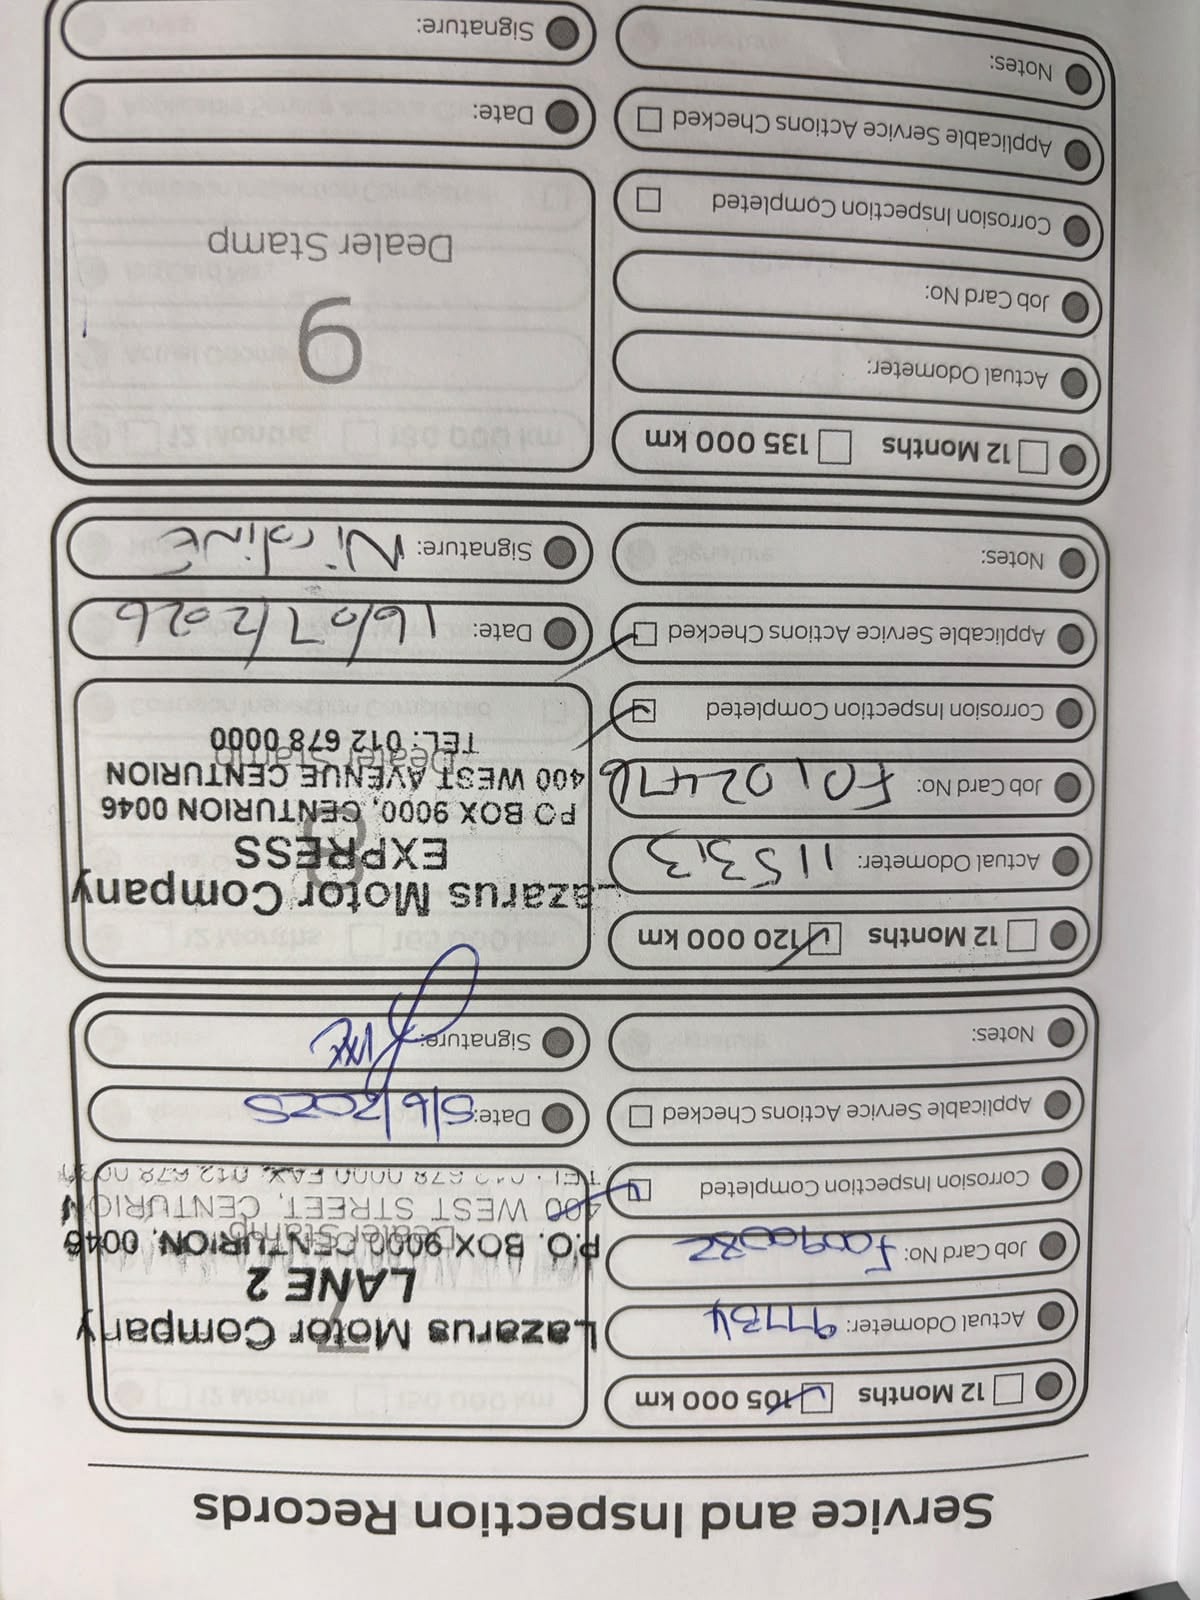 Service and Inspection Records
12 Months 105 000 km
Actual Odometer: 97734
Job Card No:
Corrosion Inspection Completed
Applicable Service Actions Checked
Notes:
Lazarus Motor Company
LANE 2
P.O. BOX 9000, CENTURION, 0046
400 WEST STREET, CENTURION
TEL: 012 678 0000 FAX: 012 678
7
Dealer Stamp
Date: 5/6/2025
Signature:
12 Months 120 000 km
Actual Odometer: 115313
Job Card No:
Corrosion Inspection Completed
Applicable Service Actions Checked
Notes:
Lazarus Motor Company
EXPRESS
PO BOX 9000, CENTURION 0046
400 WEST AVENUE CENTURION
TEL: 012 678 0000
8
Dealer Stamp
Date: 16/07/2026
Signature:
12 Months 135 000 km
Actual Odometer:
Job Card No:
Corrosion Inspection Completed
Applicable Service Actions Checked
Notes:
9
Dealer Stamp
Date:
Signature: